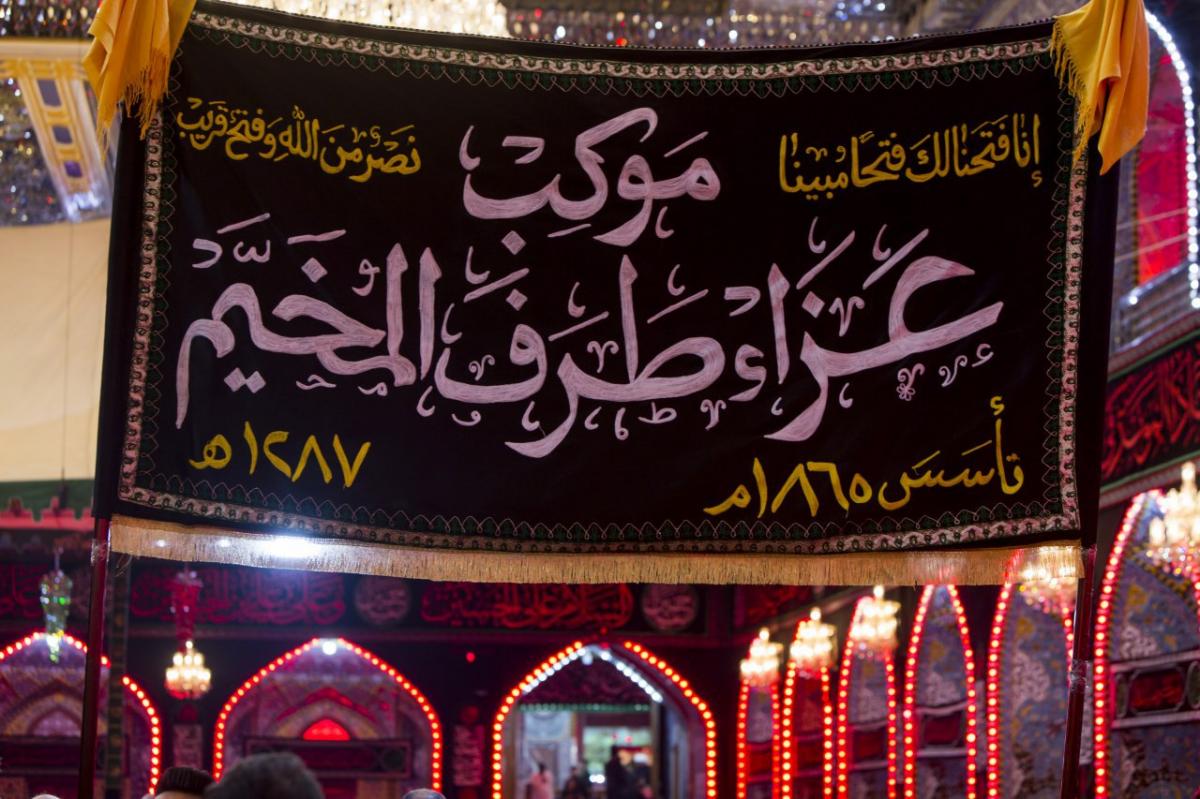 إنا فتحنا لك فتحًا مبينا
موكب
نصرٌ من اللهِ وَفتحٌ قريب
عزاء طرف المخيَّم
تأسسَ ١٨٦٥م
١٢٨٧هـ